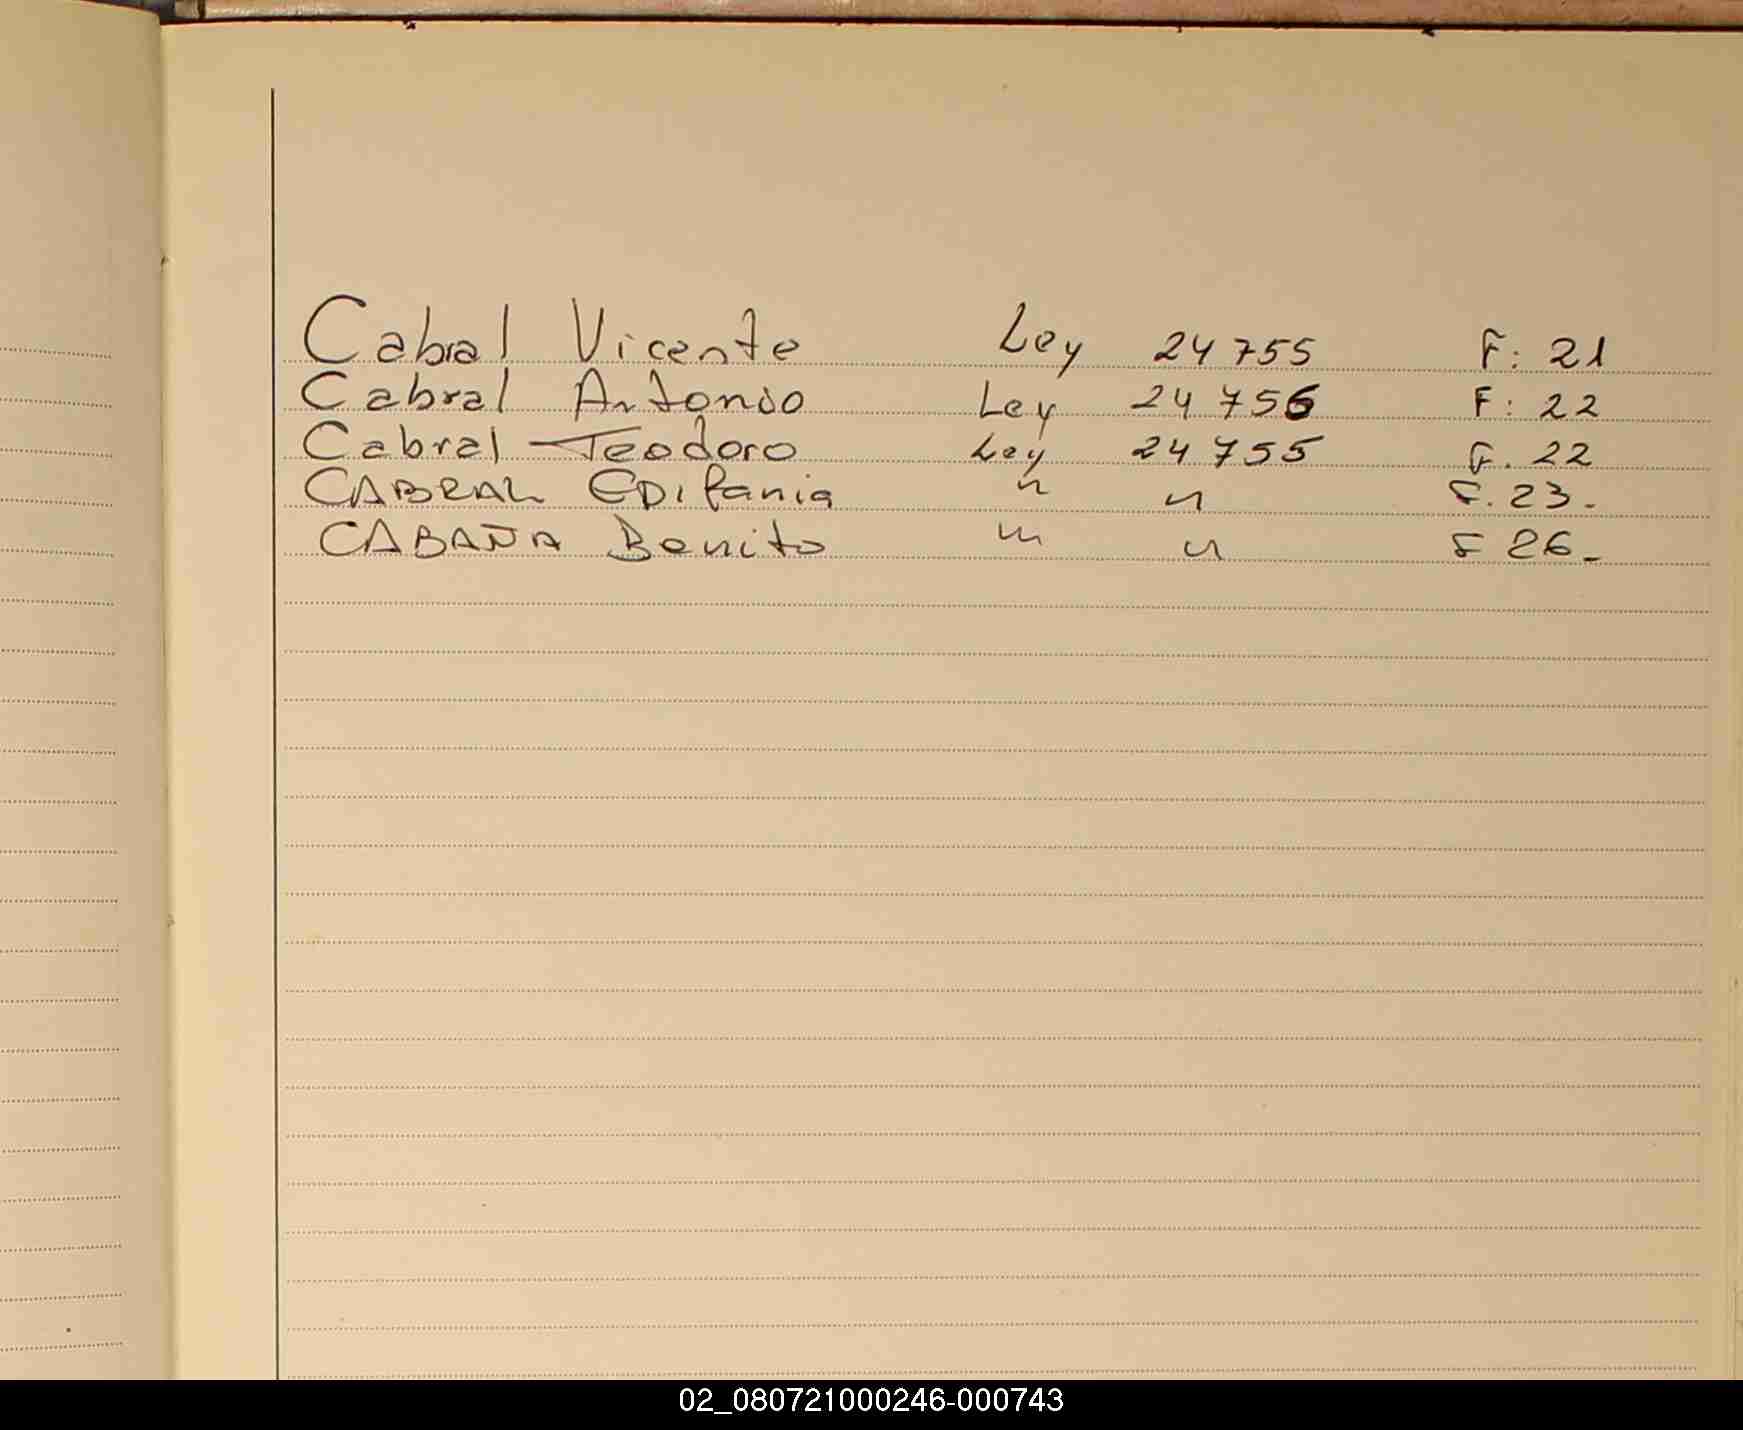 Cabral Vicente Ley 24755 F: 21
Cabral Antonio Ley 24756 F: 22
Cabral Teodoro Ley 24755 F. 22
CABRAL EDifania " " F. 23.
CABAÑA Benito " " F 26-
02_080721000246-000743